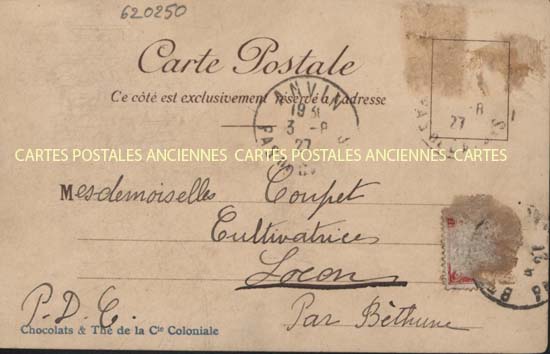 620250
Carte Postale
Ce côté est exclusivement réservé à l'adresse
ANVIN
19
3 -8
27
-8
27
CARTES POSTALES ANCIENNES CARTES POSTALES ANCIENNES CARTES
Mesdemoiselles Coupet
Cultivatrices
Locon
P.D.C.
Par Béthune
Chocolats & Thé de la Cie Coloniale